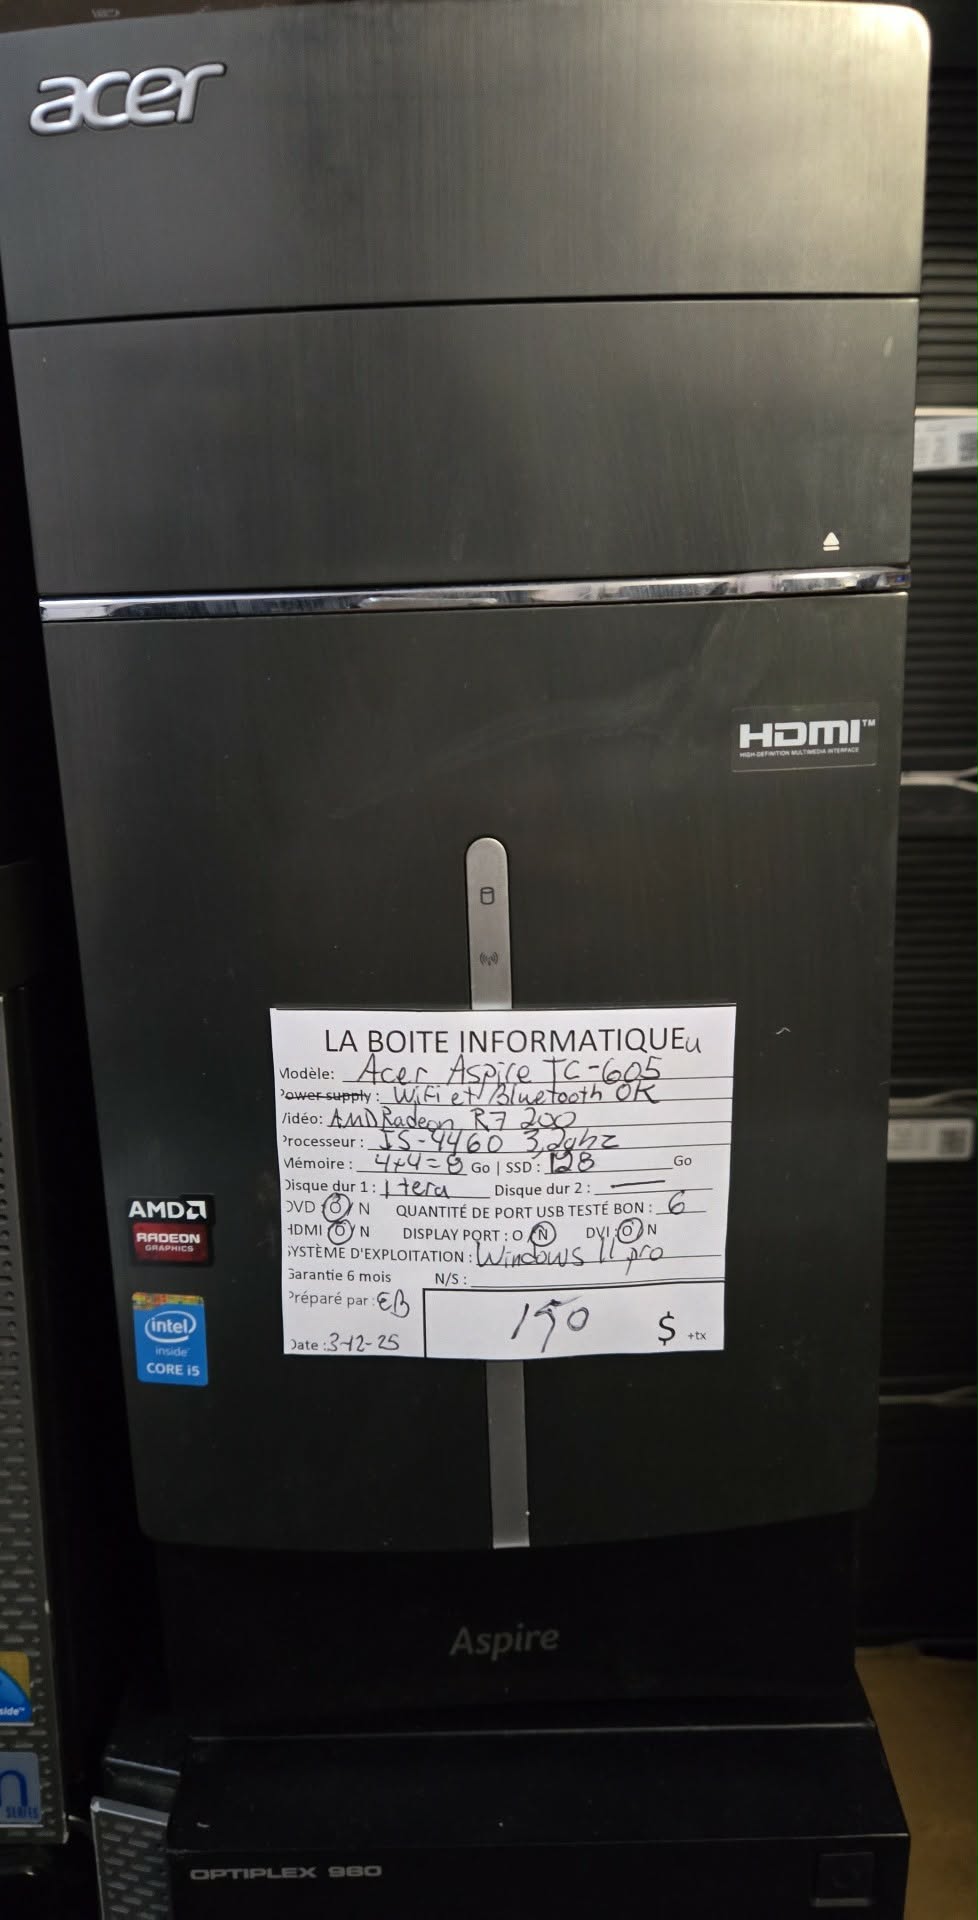 acer
HDMI™
HIGH-DEFINITION MULTIMEDIA INTERFACE
LA BOITE INFORMATIQUEu
Modèle: Acer Aspire TC-605
Power supply : WiFi et Bluetooth OK
Vidéo: AMD Radeon R7 200
Processeur : I5-4460 3,2ghz
Mémoire : 4+4=8 Go | SSD : 128 Go
Disque dur 1 : 1 tera Disque dur 2 : —
DVD O / N QUANTITÉ DE PORT USB TESTÉ BON : 6
HDMI O / N DISPLAY PORT : O / N DVI : O / N
SYSTÈME D'EXPLOITATION : Windows 11 pro
Garantie 6 mois N/S :
Préparé par : EB
150 $ +tx
Date : 3-12-25
AMD
RADEON
GRAPHICS
intel
inside
CORE i5
Aspire
OPTIPLEX 980
SERIES